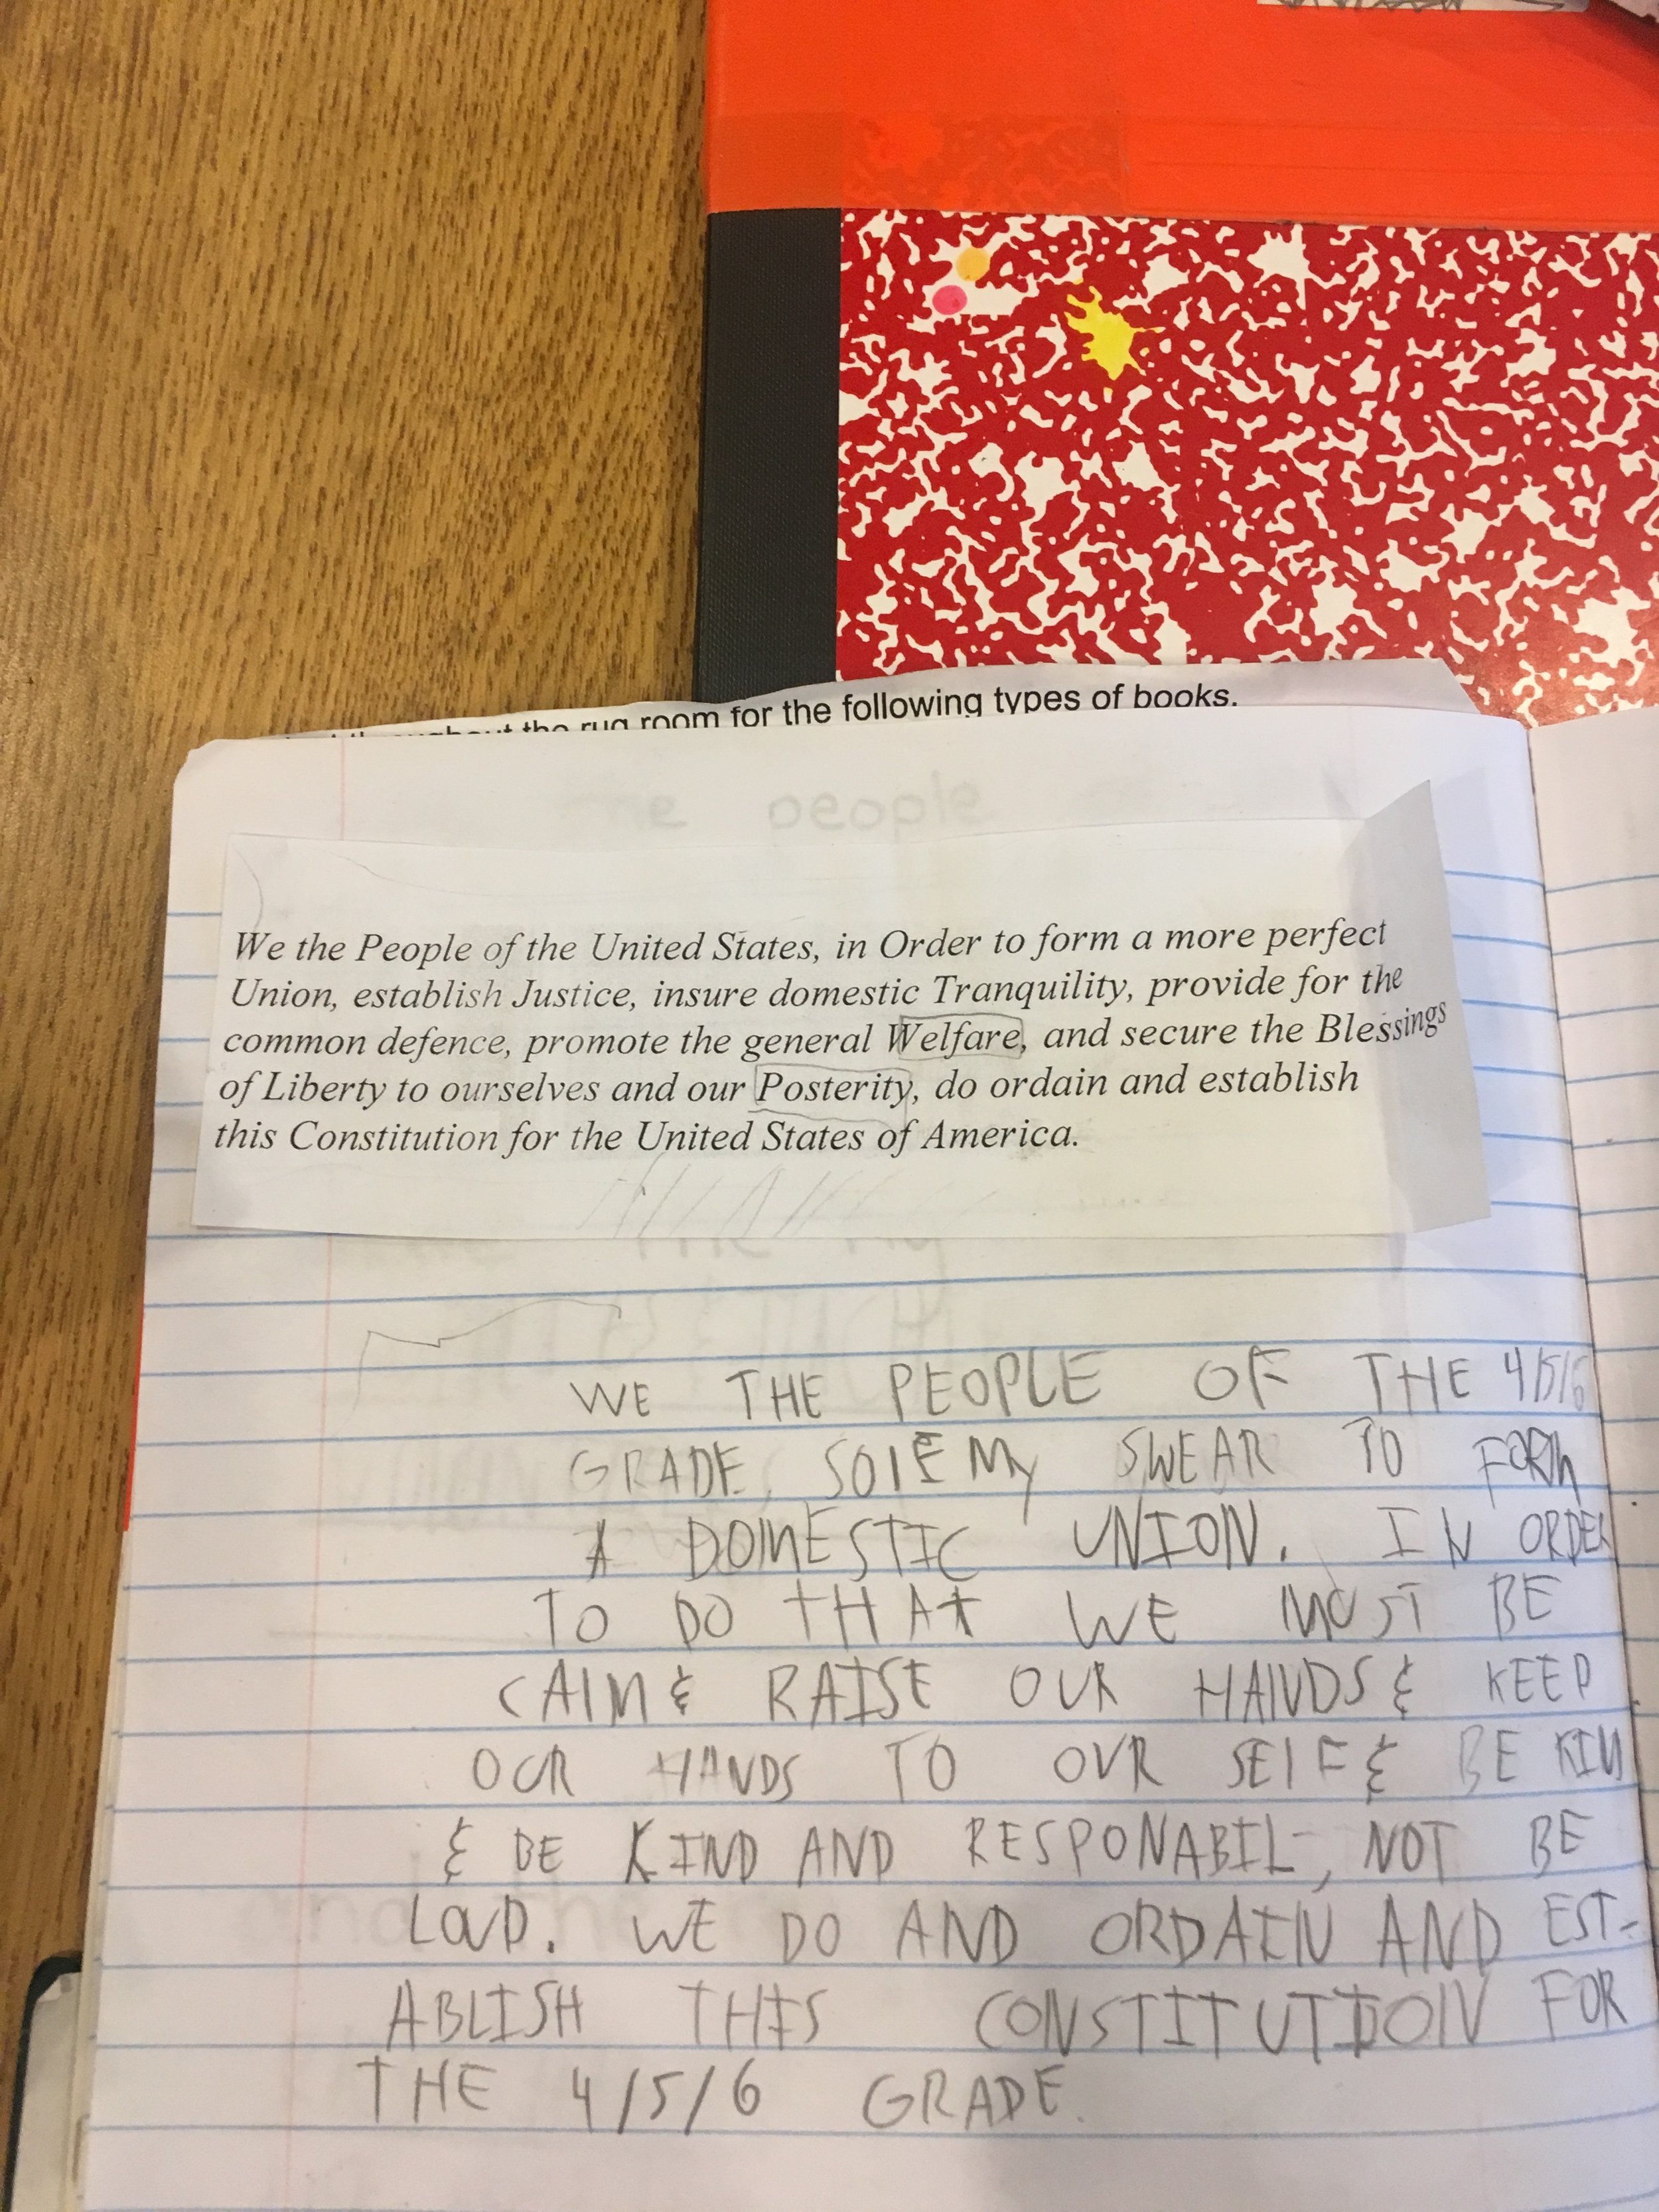 the rug room for the following types of books.
people
We the People of the United States, in Order to form a more perfect
Union, establish Justice, insure domestic Tranquility, provide for the
common defence, promote the general Welfare, and secure the Blessings
of Liberty to ourselves and our Posterity, do ordain and establish
this Constitution for the United States of America.
WE THE PEOPLE OF THE 4/5/6
GRADE, SOlEMy SWEAR TO FORM
A DOMESTIC UNION. IN ORDER
TO DO tHAt WE MUST BE
CAlM & RAISE OUR HANDS & KEEP
OUR HANDS TO OUR SElF & BE KIN
& BE KIND AND RESPONABIL, NOT BE
LOUD. WE DO AND ORDAIN AND EST-
ABLISH THIS CONSTITUTION FOR
THE 4/5/6 GRADE.